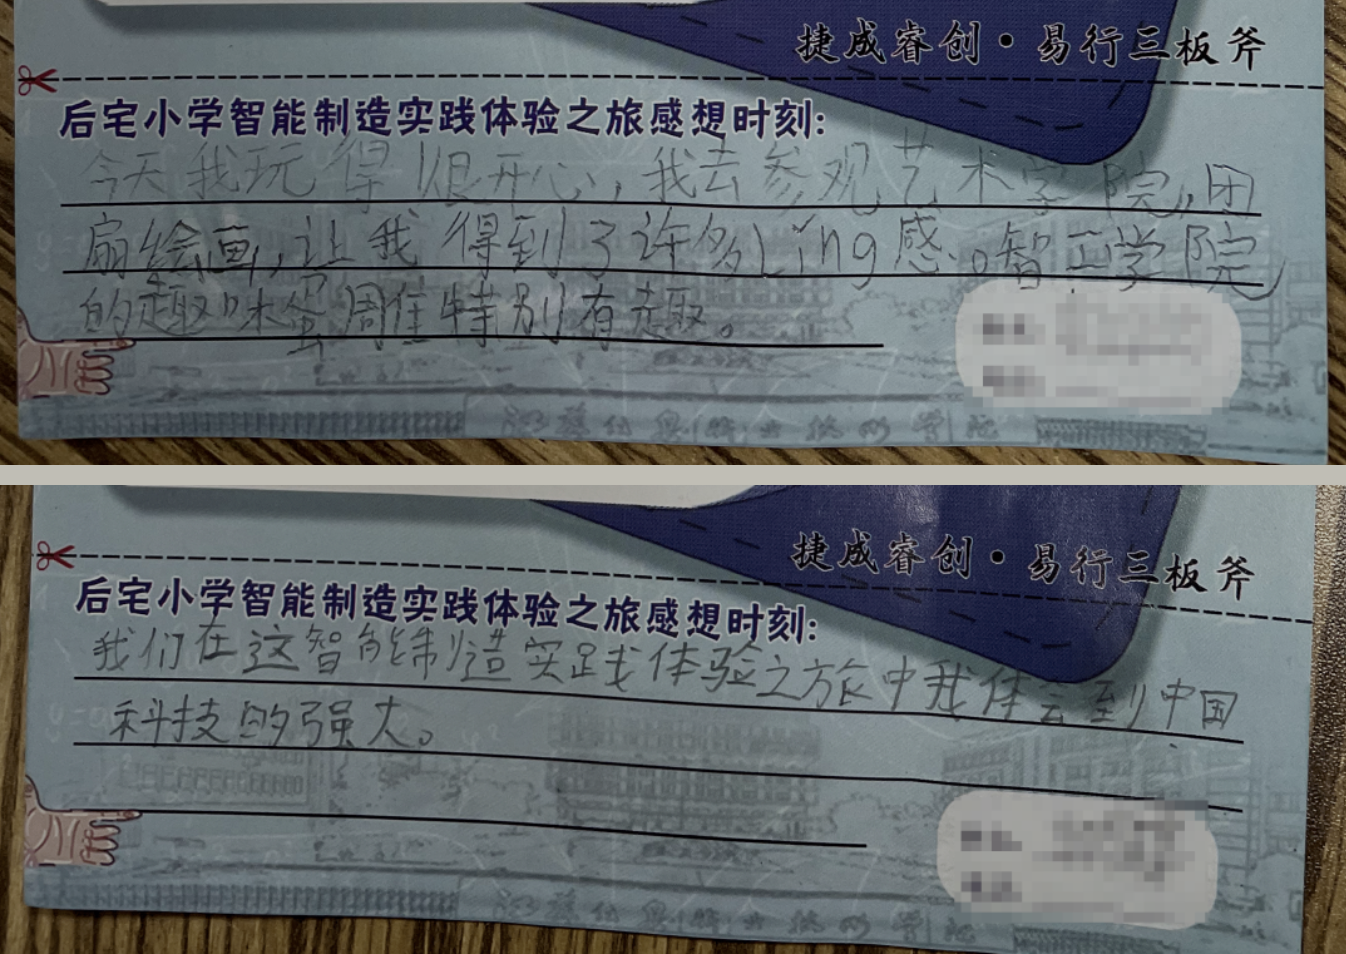 捷成睿创·易行三板斧
后宅小学智能制造实践体验之旅感想时刻:
今天我玩得很开心,我去参观艺术学院,团
扇绘画,让我得到了许多Líng感。智工学院
的趣味 周住特别有趣。
捷成睿创·易行三板斧
后宅小学智能制造实践体验之旅感想时刻:
我们在这智能制造实践体验之旅中我体会到中国
科技的强大。